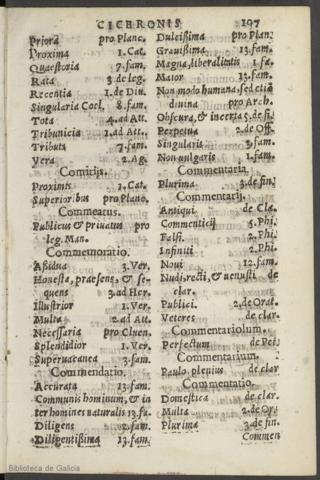 CICERONIS 197
Priora pro Planc.
Proxima 1. Cat.
Quæstoria 7. fam.
Rata 3 de leg.
Recentia 1. de Diu.
Singularia Cocl, 8. fam.
Tota 4. ad Att.
Tribunicia 1. ad Att.
Tributa 7. fam.
Vera 2. Ag.
Comitijs.
Proximis 1. Cat.
Superioribus pro Planc.
Commeatus.
Publicus & priuatus pro
leg. Man.
Commemoratio.
Aßidua 3. Ver.
Honesta, præsens, & se-
quens 3. ad Her.
Illustrior 1. Ver.
Multa 2. ad Att.
Necessaria pro Cluen.
Splendidior 1. Ver.
Superuacanea 3. fam.
Commendatio.
Accurata 13. fam.
Communis hominum, & in
ter homines naturalis 13. fa.
Diligens 2. fam.
Diligentißima 13. fam.
Dulcißima pro Plan.
Grauißima 13. fam.
Magna, liberalitatis 1. fa.
Maior 13. fam.
Non modo humana, sed etiã
diuina pro Arch.
Obscura, & incerta 5. de fi.
Perpetua 2. de Off.
Singularis 3. fam.
Non uulgaris 1. fam.
Commentaria.
Plurima 3. de fin.
Commentarij.
Antiqui de Cla.
Commenticij 5. Phi.
Falsi. 2. Phi.
Infiniti 2. Phi.
Noui 12. fam.
Nudi, recti, & uenusti, de
clar.
Publici. 2. de Orat.
Veteres de clar.
Commentariolum.
Perfectum de Pet.
Commentarium.
Paulo plenius de clar
Commentatio.
Domestica de clar.
Multa 2. de Or.
Plurima 3. de fin.
Commen
Biblioteca de Galicia